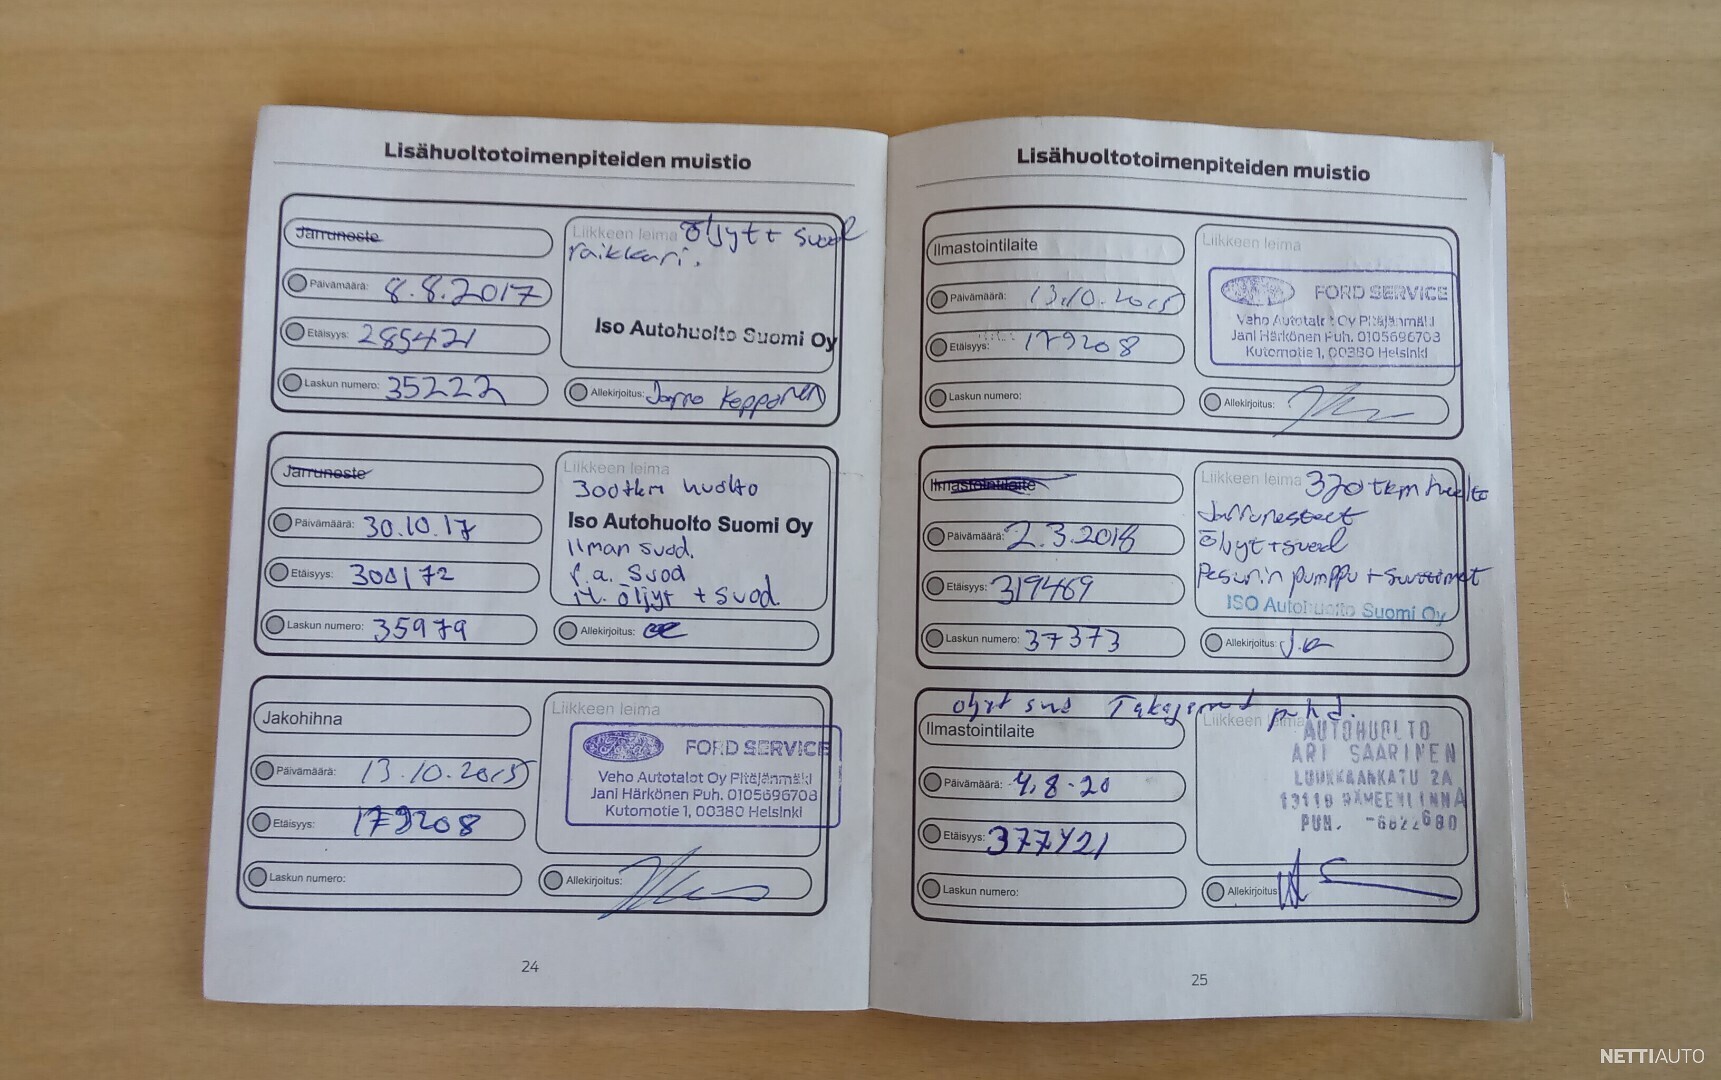 Lisähuoltotoimenpiteiden muistio
Jarruneste
Päivämäärä: 8.8.2017
Etäisyys: 285421
Laskun numero: 35222
Liikkeen leima öljyt + suod
raikkari.
Iso Autohuolto Suomi Oy
Allekirjoitus: Jarno Kopponen
Jarruneste
Päivämäärä: 30.10.17
Etäisyys: 300172
Laskun numero: 35979
Liikkeen leima
300tkm huolto
Iso Autohuolto Suomi Oy
Ilman suod.
r.a. Suod
öljyt + suod.
Allekirjoitus:
Jakohihna
Päivämäärä: 13.10.2015
Etäisyys: 179208
Laskun numero:
Liikkeen leima
Ford FORD SERVICE
Veho Autotalot Oy Pitäjänmäki
Jani Härkönen Puh. 0105696703
Kutomotie 1, 00380 Helsinki
Allekirjoitus:
24
Lisähuoltotoimenpiteiden muistio
Ilmastointilaite
Päivämäärä: 13.10.2015
Etäisyys: 179208
Laskun numero:
Liikkeen leima
Ford FORD SERVICE
Veho Autotalot Oy Pitäjänmäki
Jani Härkönen Puh. 0105696703
Kutomotie 1, 00380 Helsinki
Allekirjoitus:
Ilmastointilaite
Päivämäärä: 2.3.2018
Etäisyys: 319469
Laskun numero: 37373
Liikkeen leima 320tkm huolto
Jarrunesteet
Öljyt + suod
Pesurin pumppu + suuttimet
ISO Autohuolto Suomi Oy
Allekirjoitus:
öljyt suod
Ilmastointilaite
Päivämäärä: 4.8.20
Etäisyys: 377421
Laskun numero:
Liikkeen leima
AUTOHUOLTO
ARI SAARINEN
LUUKKAANKATU 2A
13110 HÄMEENLINNA
PUH. -6822680
Allekirjoitus:
25
NETTIAUTO